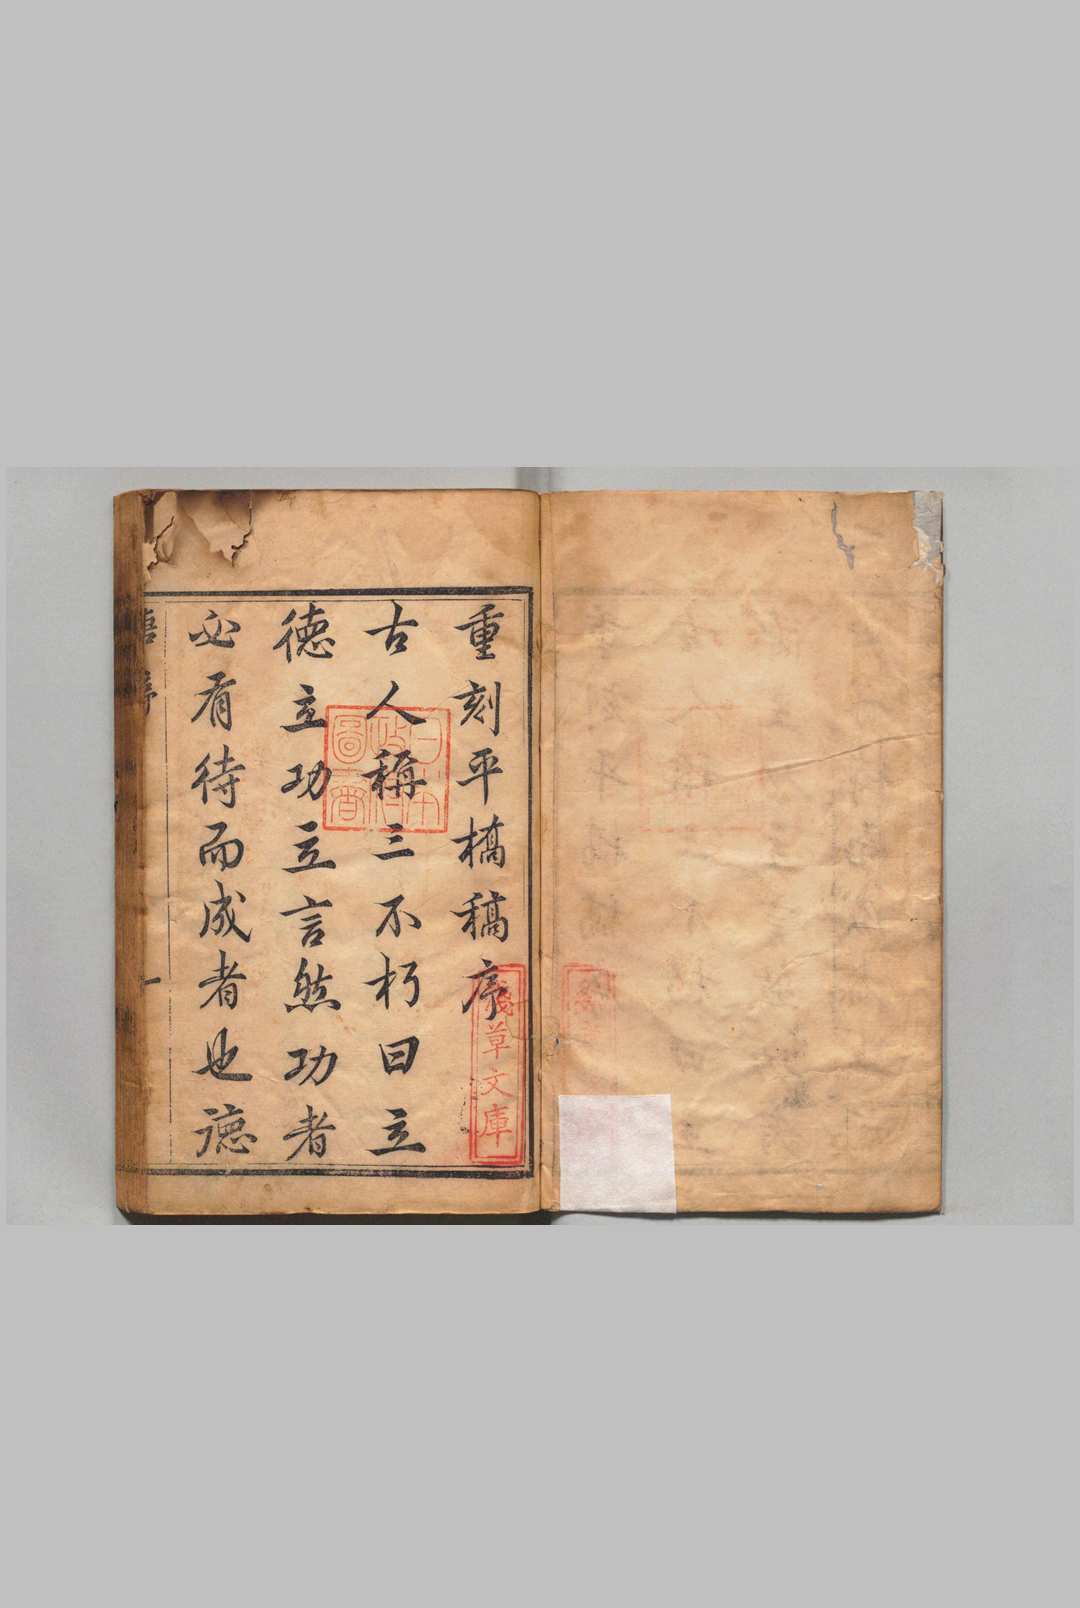 重刻平橋稿序
古人稱三不朽曰立
德立功立言然功者
必有待而成者也德
唐序
一
淺草文庫
日本政府圖書